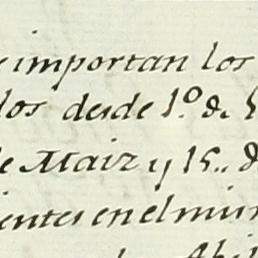 importan los
dos desde 1.º de
de Maiz y 15.. d
ientes en el mi